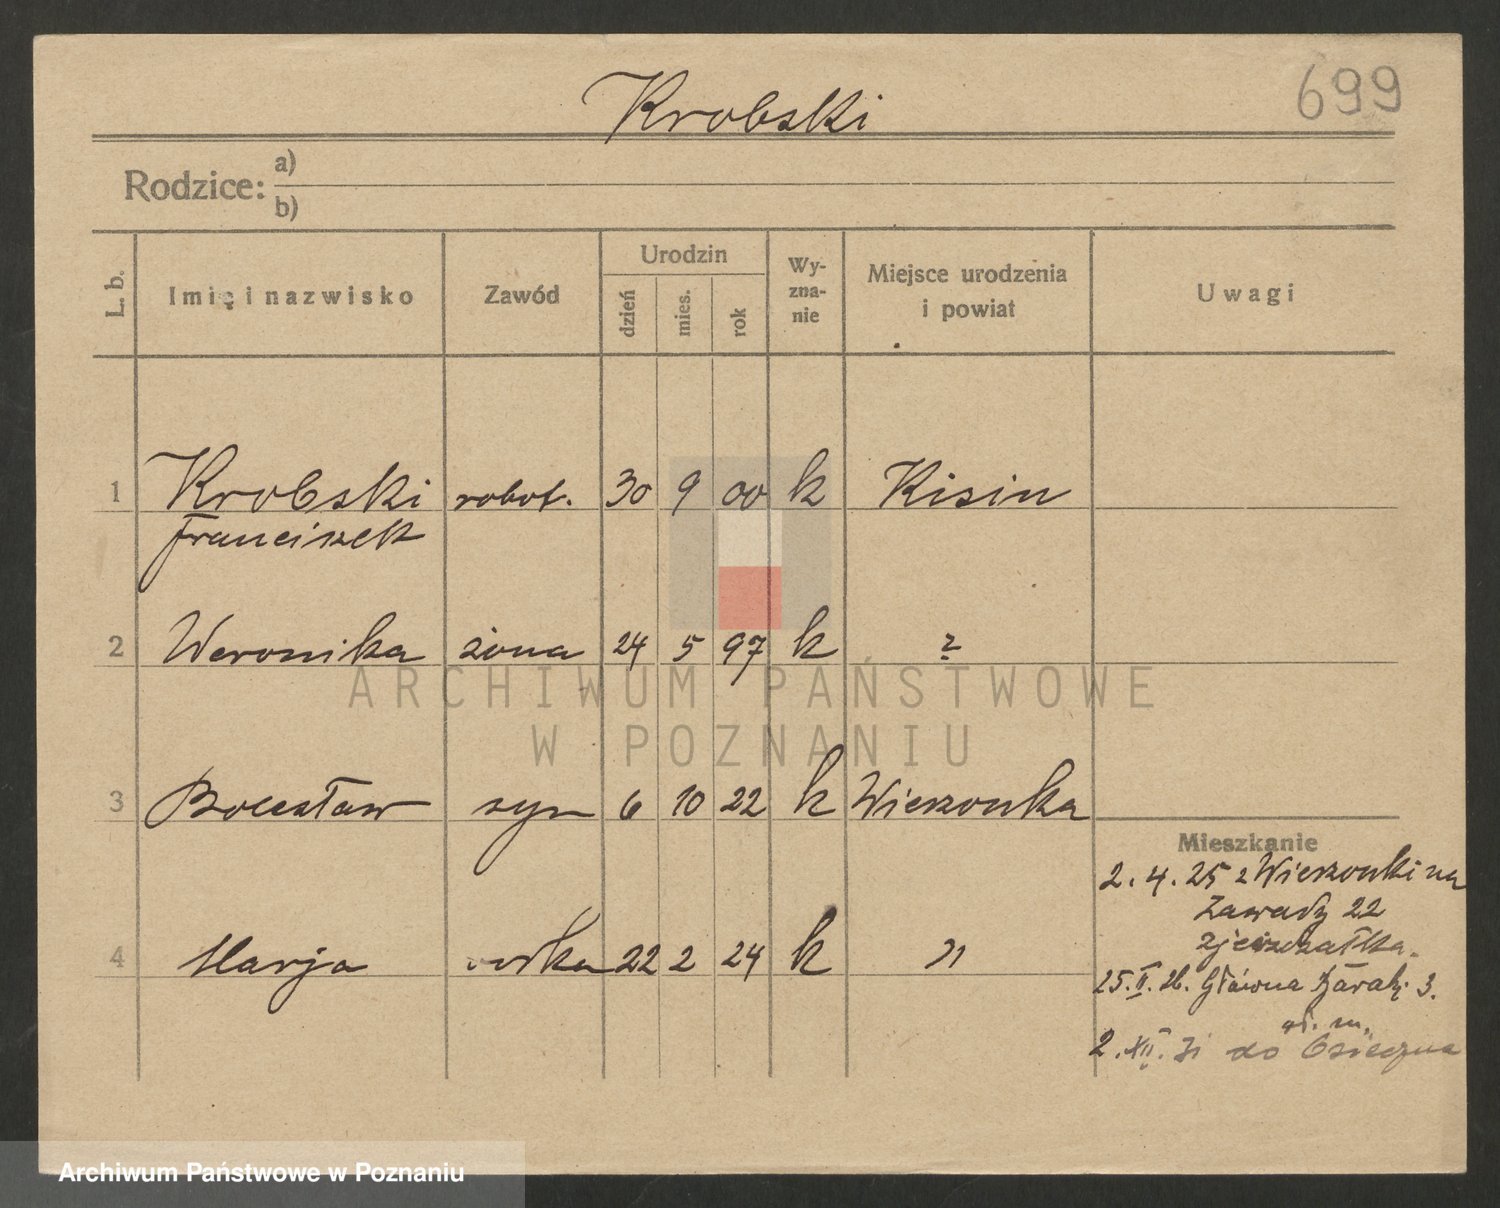 Krobski
699
Rodzice: a)
b)
L. b.
Imię i nazwisko
Zawód
Urodzin
dzień
mies.
rok
Wy-
zna-
nie
Miejsce urodzenia
i powiat
Uwagi
1 Krobski robot. 30 9 00 k Kisin
Franciszek
2 Weronika żona 24 5 97 k ?
ARCHIWUM PAŃSTWOWE
W POZNANIU
3 Bolesław syn 6 10 22 k Wierzonka
Mieszkanie
2. 4. 25 z Wierzonki na
Zawady 22
4 Marja 22 2 24 k "
25. II. 26. Główna Barak. 3.
2. XII. do Osieczna
Archiwum Państwowe w Poznaniu